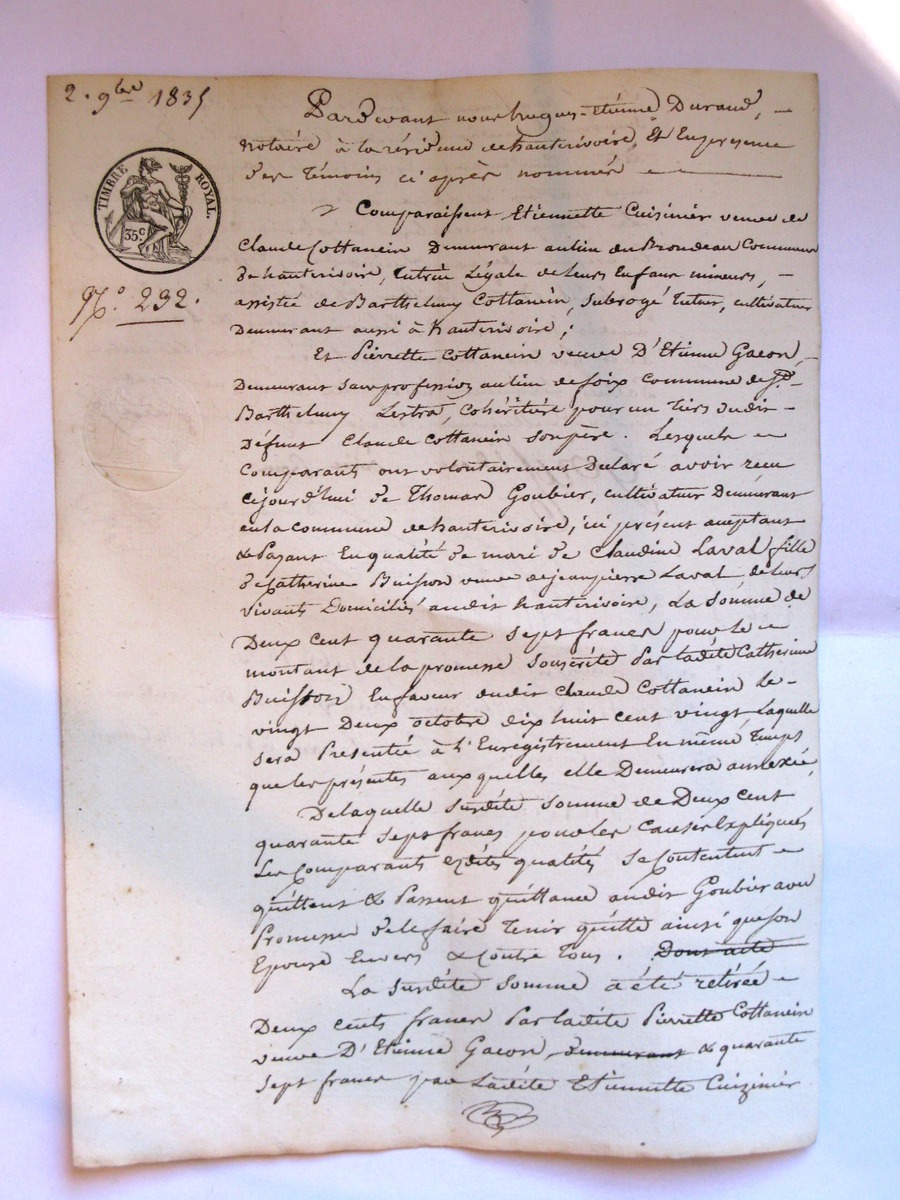 2. 9bre 1835
TIMBRE ROYAL.
35c
No. 232.
Pardevant nous hugues-etiénne Durand, –
notaire à la résidence de hauterivoire, Et En presence
des Témoins ci après nommés
Comparaissent Etiennette Cuisinier veuve de
Claude Cottancin Demeurant au lieu du Brondeau Commune
de hauterivoire, tutrice Légale de leurs Enfans mineurs, –
assistée de Barthelmy Cottancin, subrogé tuteur, cultivateur
Demeurant aussi à hauterivoire ;
Et Pierrette Cottancin veuve D'Etienne Gacon, –
Demeurant sans profession au lieu de foix commune de St.
Barthelmy Lestra, cohéritière pour un tiers dudit –
Défunt Claude Cottancin son père. Lesquels –
Comparants ont volontairement Déclaré avoir reçu
cejourd'hui de Thomas Goubier, cultivateur Demeurant
en la commune de hauterivoire, ici présent acceptant
& Payant En qualité de mari de Claudine Laval fille
de Catherine Buisson veuve de jean pierre Laval, de leurs
vivants Domiciliés audit hauterivoire, La somme de
Deux cent quarante sept francs pour le –
montant de la promesse souscrite Par ladite Catherine
Buisson En faveur dudit Claude Cottancin Le –
vingt Deux octobre dix huit cent vingt Laquelle
sera Présentée à l'Enregistrement En même Temps
que les présentes aux quelles elle Demeurera annexée,
De laquelle susdite somme de Deux cent
quarante sept francs pour les causes Expliquées
Les Comparants esdites qualités se Contentent –
quittent & Passent quittance audit Goubier avec
Promesse de le faire Tenir quitte ainsi que son
Epouse Envers & Contre Tous. Dont acte
La susdite somme à été retirée –
Deux cents francs Par ladite Pierrette Cottancin
veuve D'Etienne Gacon, demeurant & quarante
sept francs par Ladite Etiennette Cuizinier